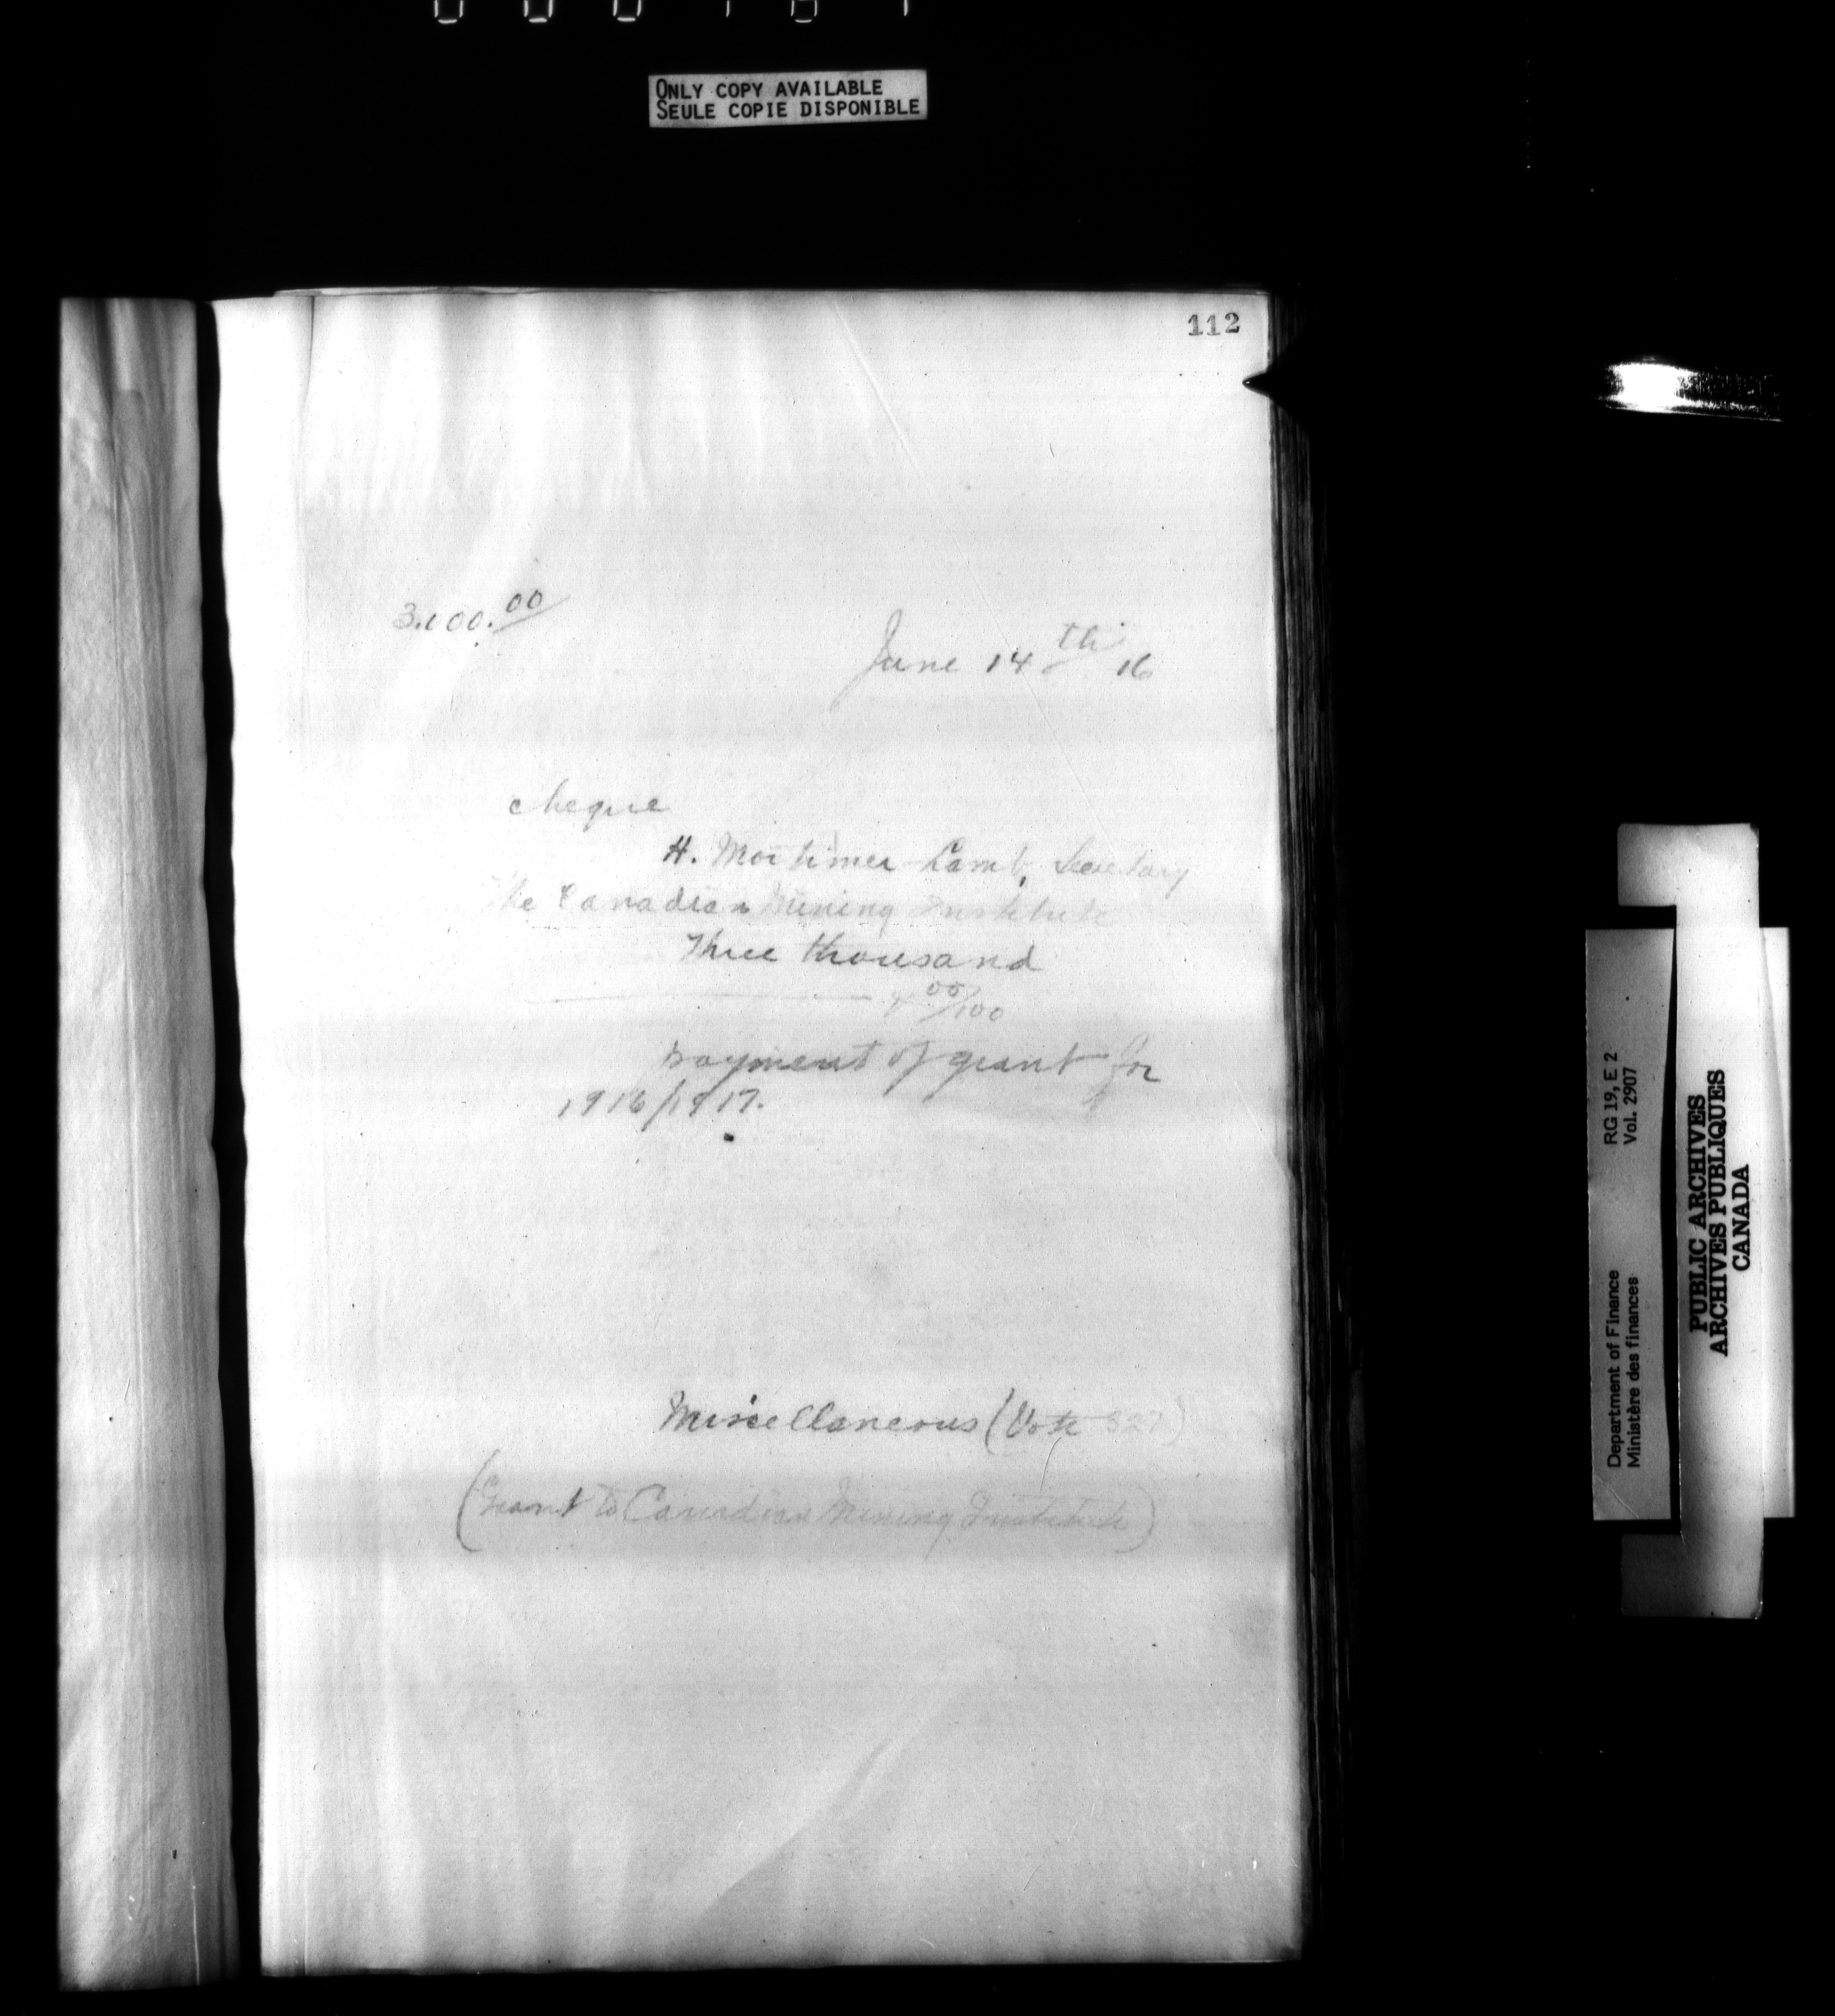 ONLY COPY AVAILABLE
SEULE COPIE DISPONIBLE
112
3.000.00
June 14th 16
cheque
H. Mortimer-Lamb, Secretary
The Canadian Mining Institute
Three thousand
00/100
payment of grant for
1916/1917.
Miscellaneous (Vote 327)
(Grant to Canadian Mining Institute)
Department of Finance RG 19, E 2
Ministère des finances Vol. 2907
PUBLIC ARCHIVES
ARCHIVES PUBLIQUES
CANADA